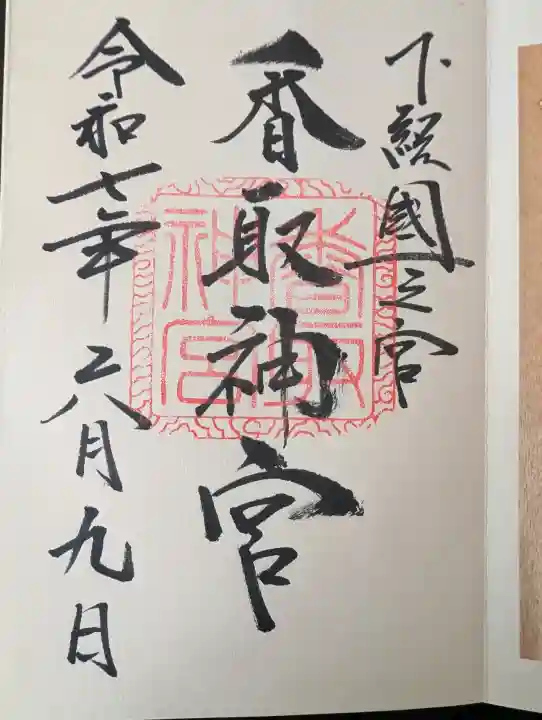 下総國一之宮
香取神宮
香取神宮
令和七年六月九日